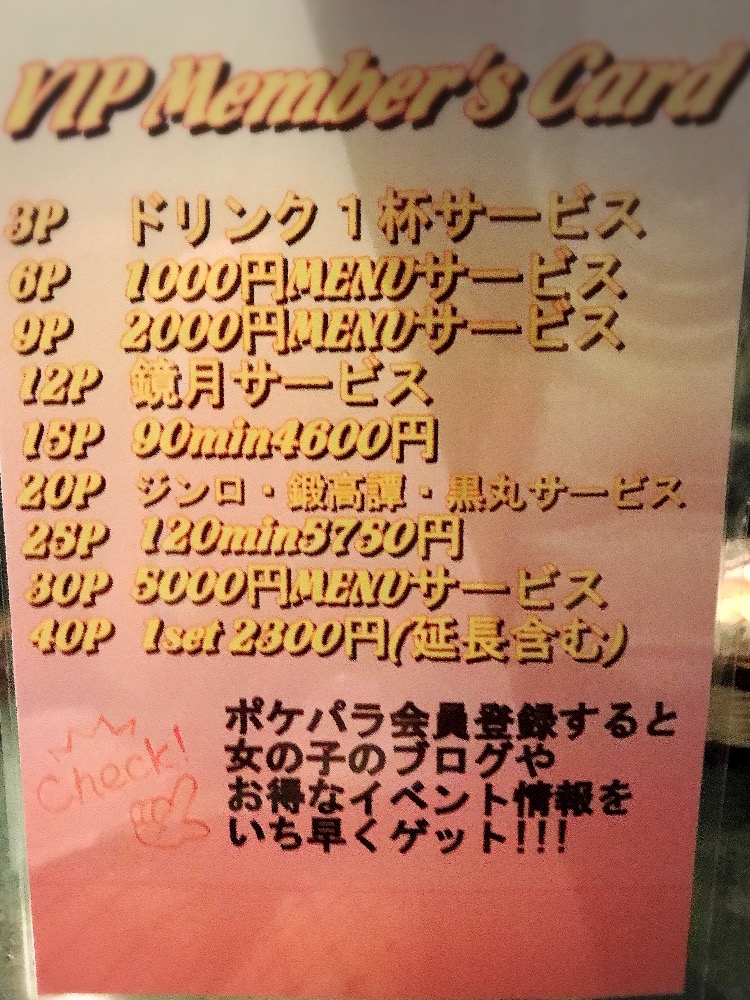 VIP Member's Card
3P ドリンク1杯サービス
6P 1000円MENUサービス
9P 2000円MENUサービス
12P 鏡月サービス
15P 90min4600円
20P ジンロ・鍛高譚・黒丸サービス
25P 120min5750円
30P 5000円MENUサービス
40P 1set 2300円(延長含む)
Check!
ポケパラ会員登録すると
女の子のブログや
お得なイベント情報を
いち早くゲット!!!